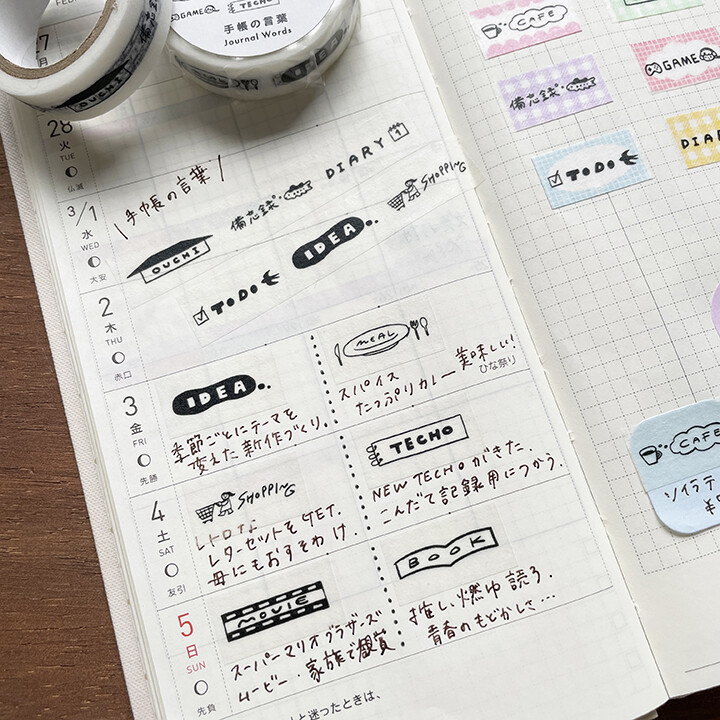 FEB
27
月
GAME
TECHO
手帳の言葉
Journal Words
備忘録
OUCHI
IDEA
28
火
TUE
仏滅
\手帳の言葉/
備忘録
DIARY 1
3/1
水
WED
大安
OUCHI
TODO
IDEA
SHOPPING
2
木
THU
赤口
3
金
FRI
先勝
IDEA
季節ごとにテーマを
変えた新作づくり。
MEAL
スパイス
たっぷりカレー 美味しい!
ひな祭り
4
土
SAT
友引
SHOPPING
レトロな
レターセットをGET.
母にもおすそわけ.
TECHO
NEW TECHOができた.
こんだて記録用につかう.
5
日
SUN
先負
MOVIE
スーパーマリオブラザーズ
ムービー・家族で観賞
BOOK
推し、燃ゆ 読う.
青春のもどかしさ...
と迷ったときは、
CAFE
備忘録
GAME
TODO
DIAR
CAFE
ソイラテ